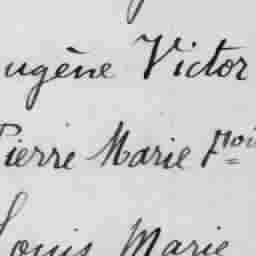 ugène Victor
Pierre Marie
Louis Marie